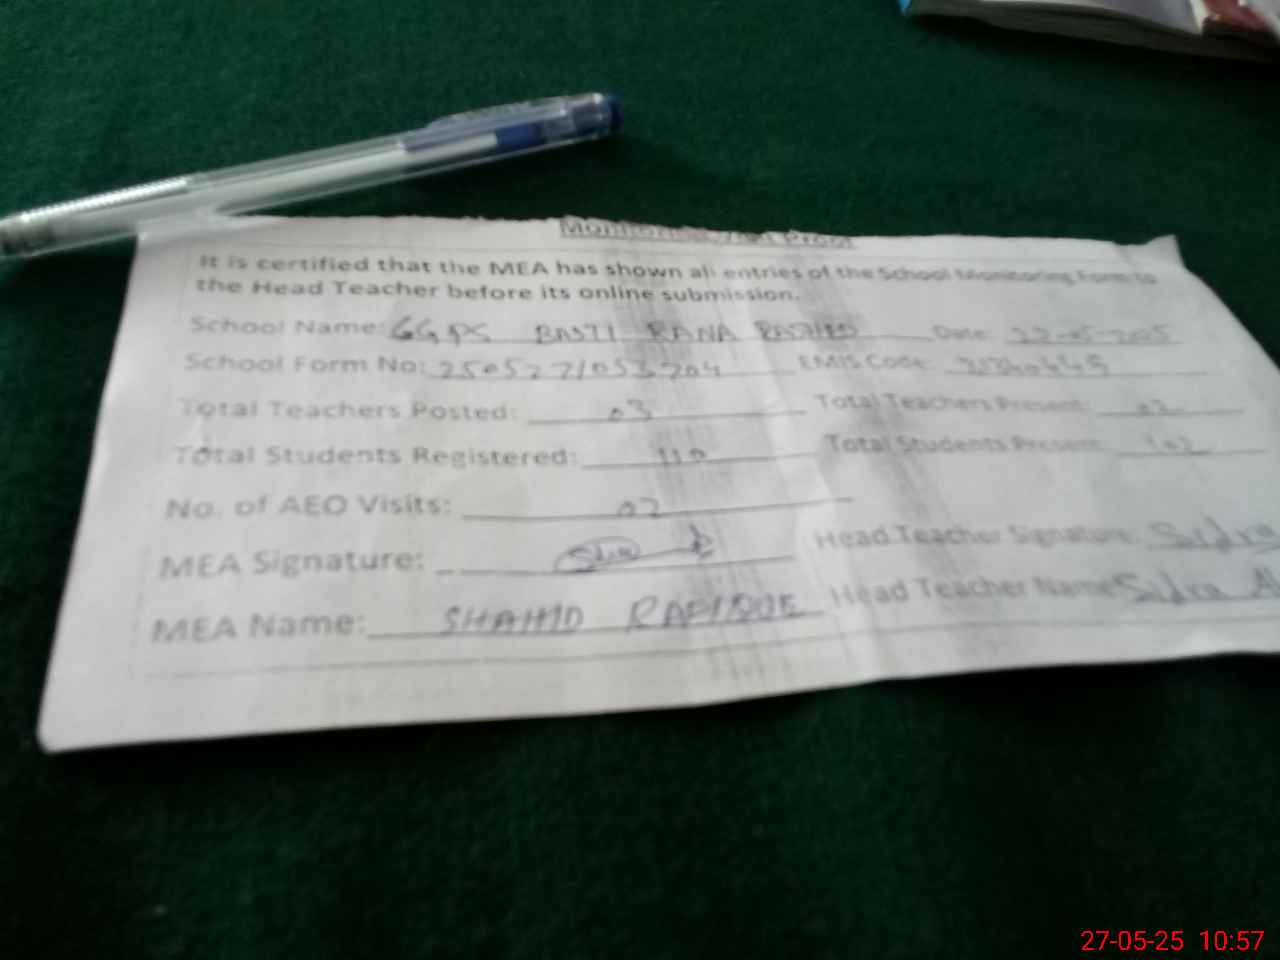 Monitoring Visit Proof
It is certified that the MEA has shown all entries of the School Monitoring Form to
the Head Teacher before its online submission.
School Name: GGPS BASTI RANA RASHED Date:
School Form No: 250527/053204 EMIS Code:
Total Teachers Posted: 03 Total Teachers Present: 02
Total Students Registered: 110 Total Students Present: 102
No. of AEO Visits: 02
MEA Signature: Head Teacher Signature: Sidra
MEA Name: SHAHID RAFIQUE Head Teacher Name: Sidra
27-05-25 10:57